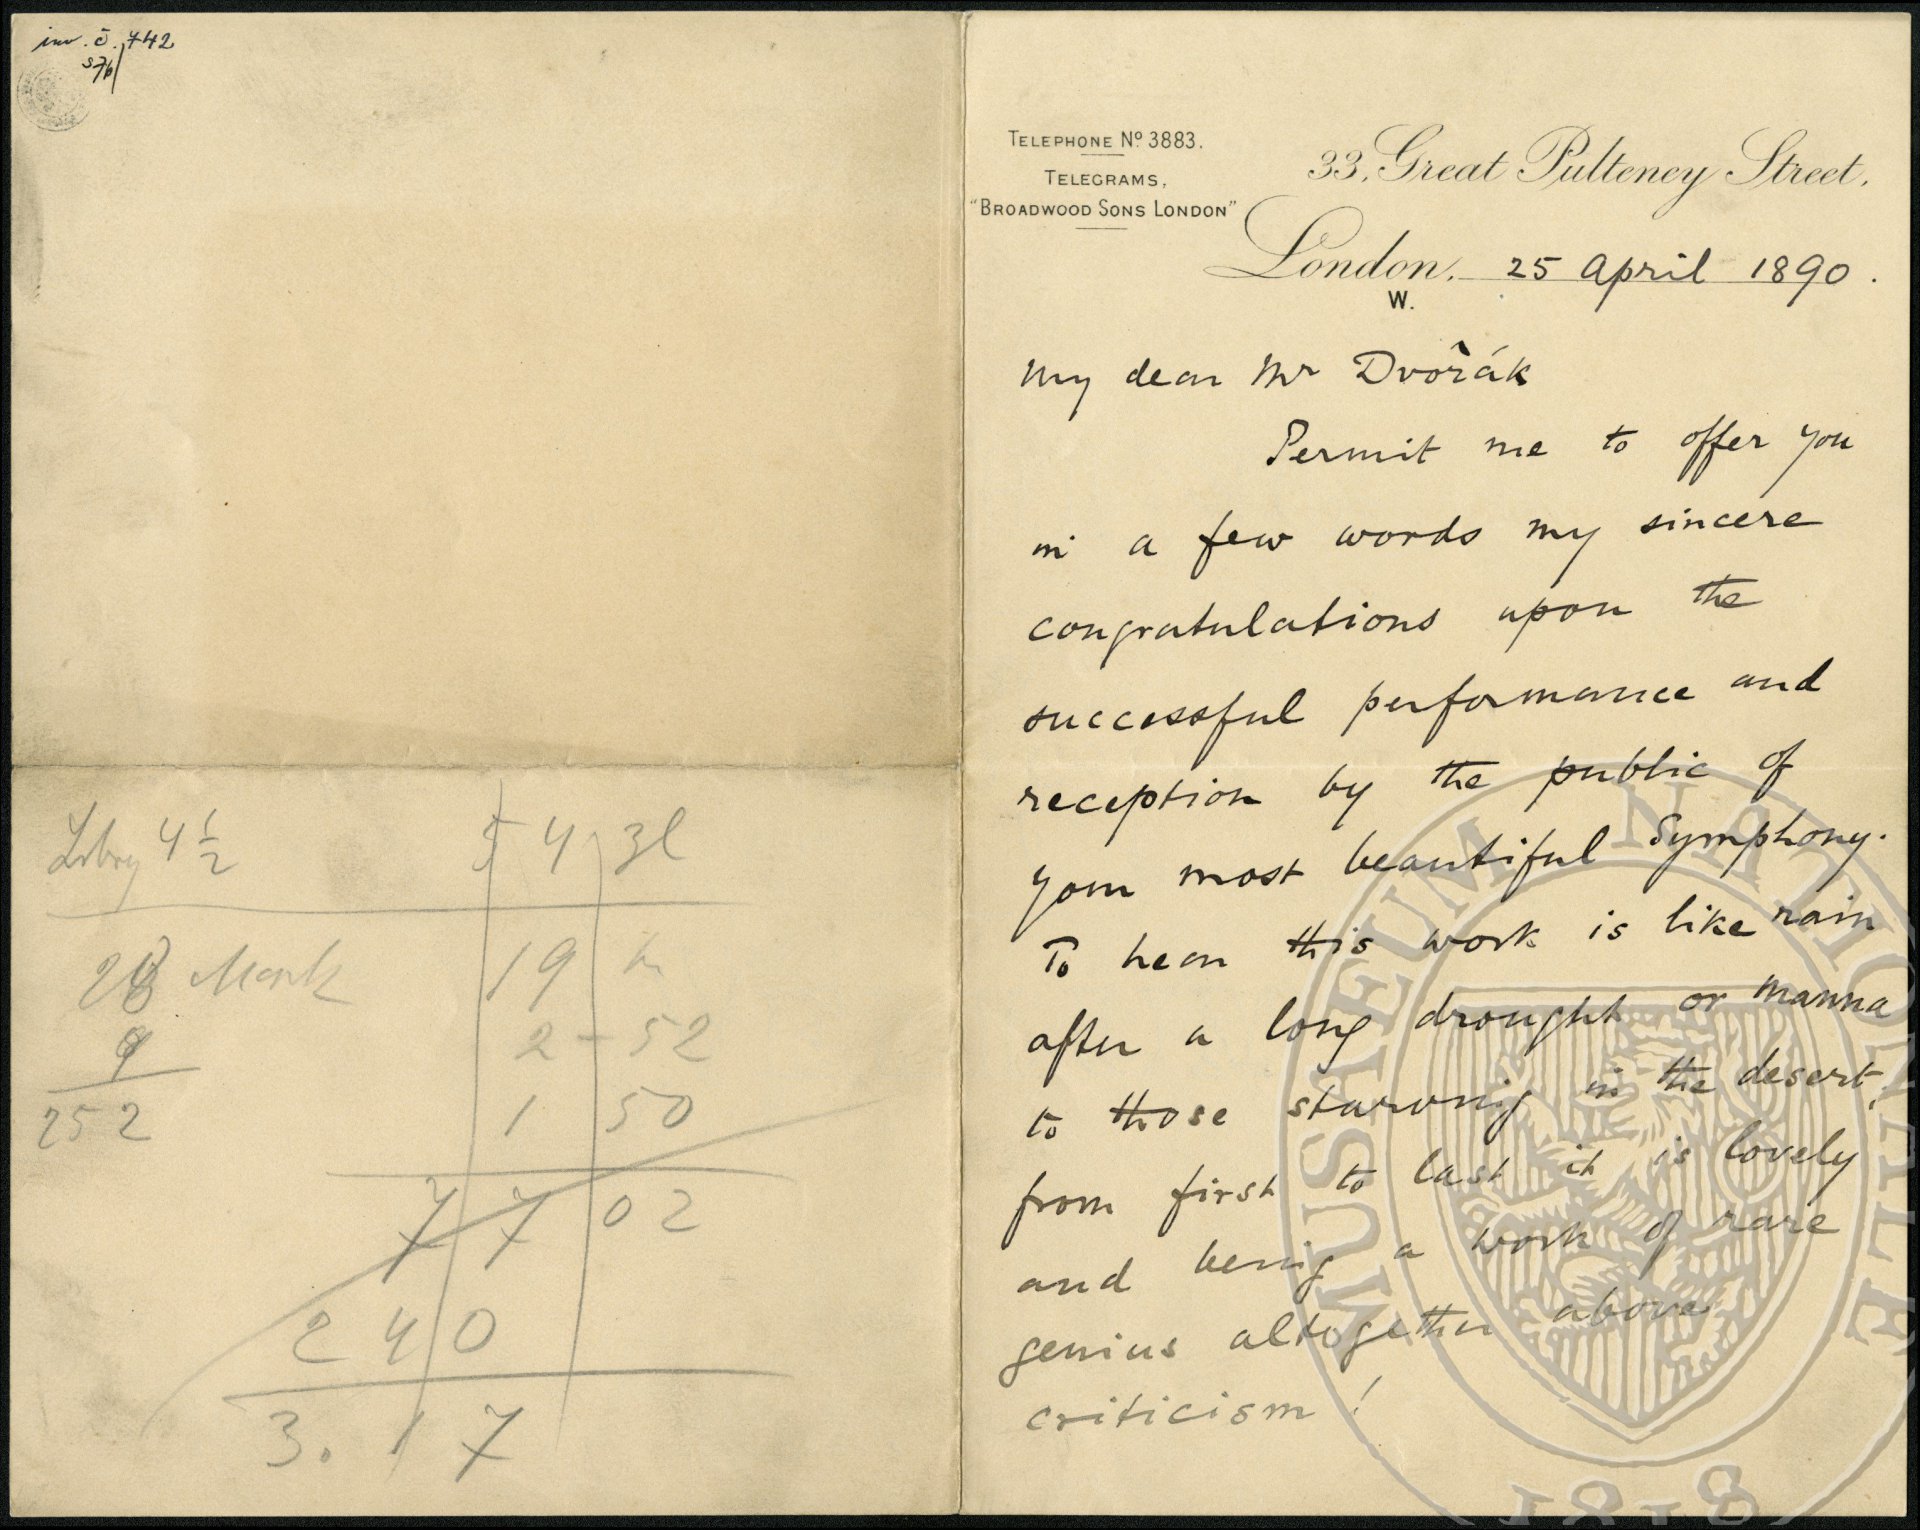 inv. č. 742
TELEPHONE Nº 3883.
TELEGRAMS,
"BROADWOOD SONS LONDON"
33, Great Pulteney Street,
London, 25 April 1890.
W.
My dear Mr Dvořák
Permit me to offer you
in a few words my sincere
congratulations upon the
successful performance and
reception by the public of
your most beautiful Symphony.
To hear this work is like rain
after a long drought or manna
to those starving in the desert,
from first to last it is lovely
and being a work of rare
genius altogether above
criticism!
4 1/2
54 3l
28 Mark
19
9
2-52
252
1 50
77 02
240
3.17
MUSAEUM NATIONALE
1818